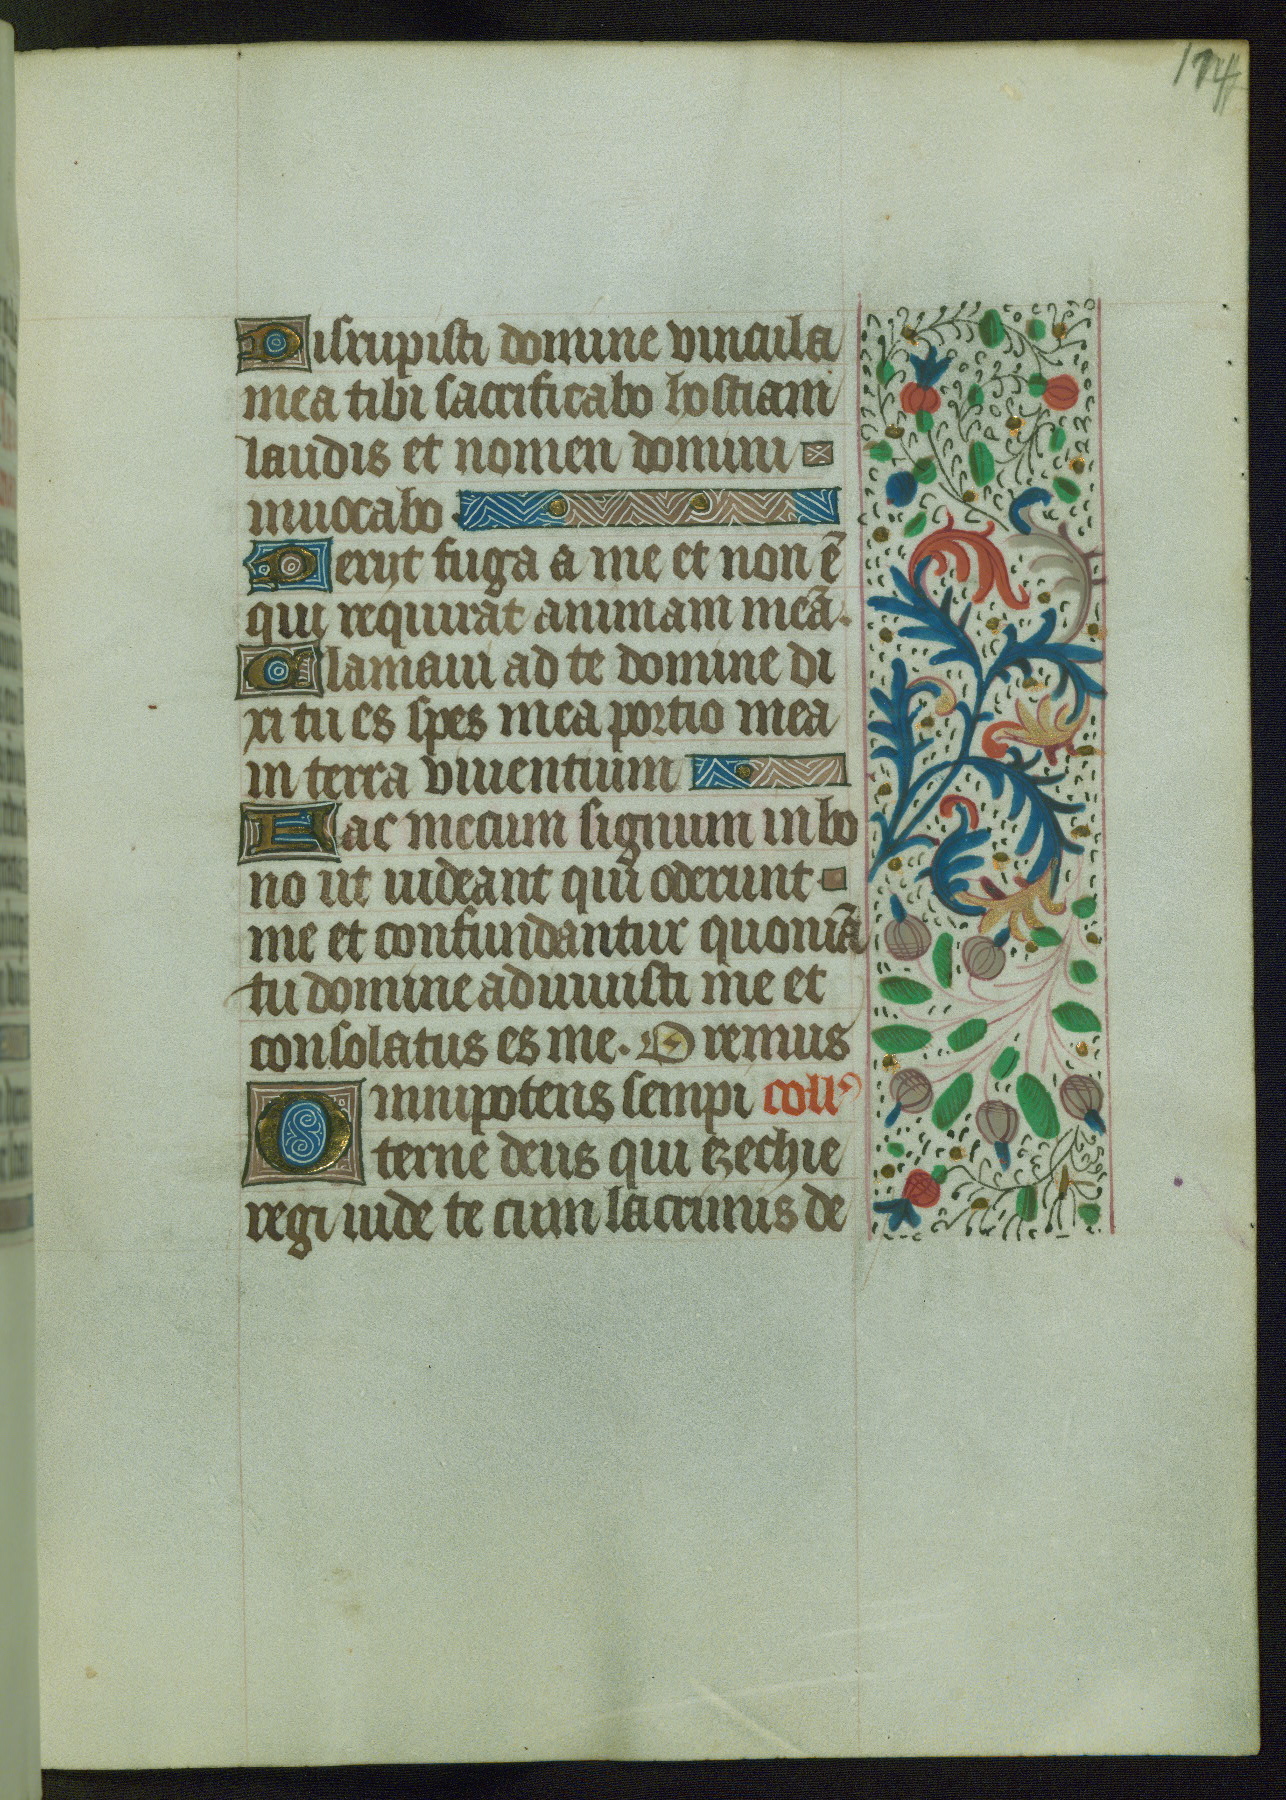 174
Disrupisti domine vincula
mea tibi sacrificabo hostiam
laudis et nomen domini
inuocabo
Perijt fuga a me et non ē
qui requirat animam meā.
Clamaui ad te domine di
xi tu es spes mea portio mea
in terra viuentium
Fac mecum signum in bo
no ut uideant qui oderunt
me et confundantur quoniā
tu domine adiuuisti me et
consolatus es me. Oremus
Omnipotens sempi coll'
terne deus qui ezechie
regi iude te cum lacrimis de